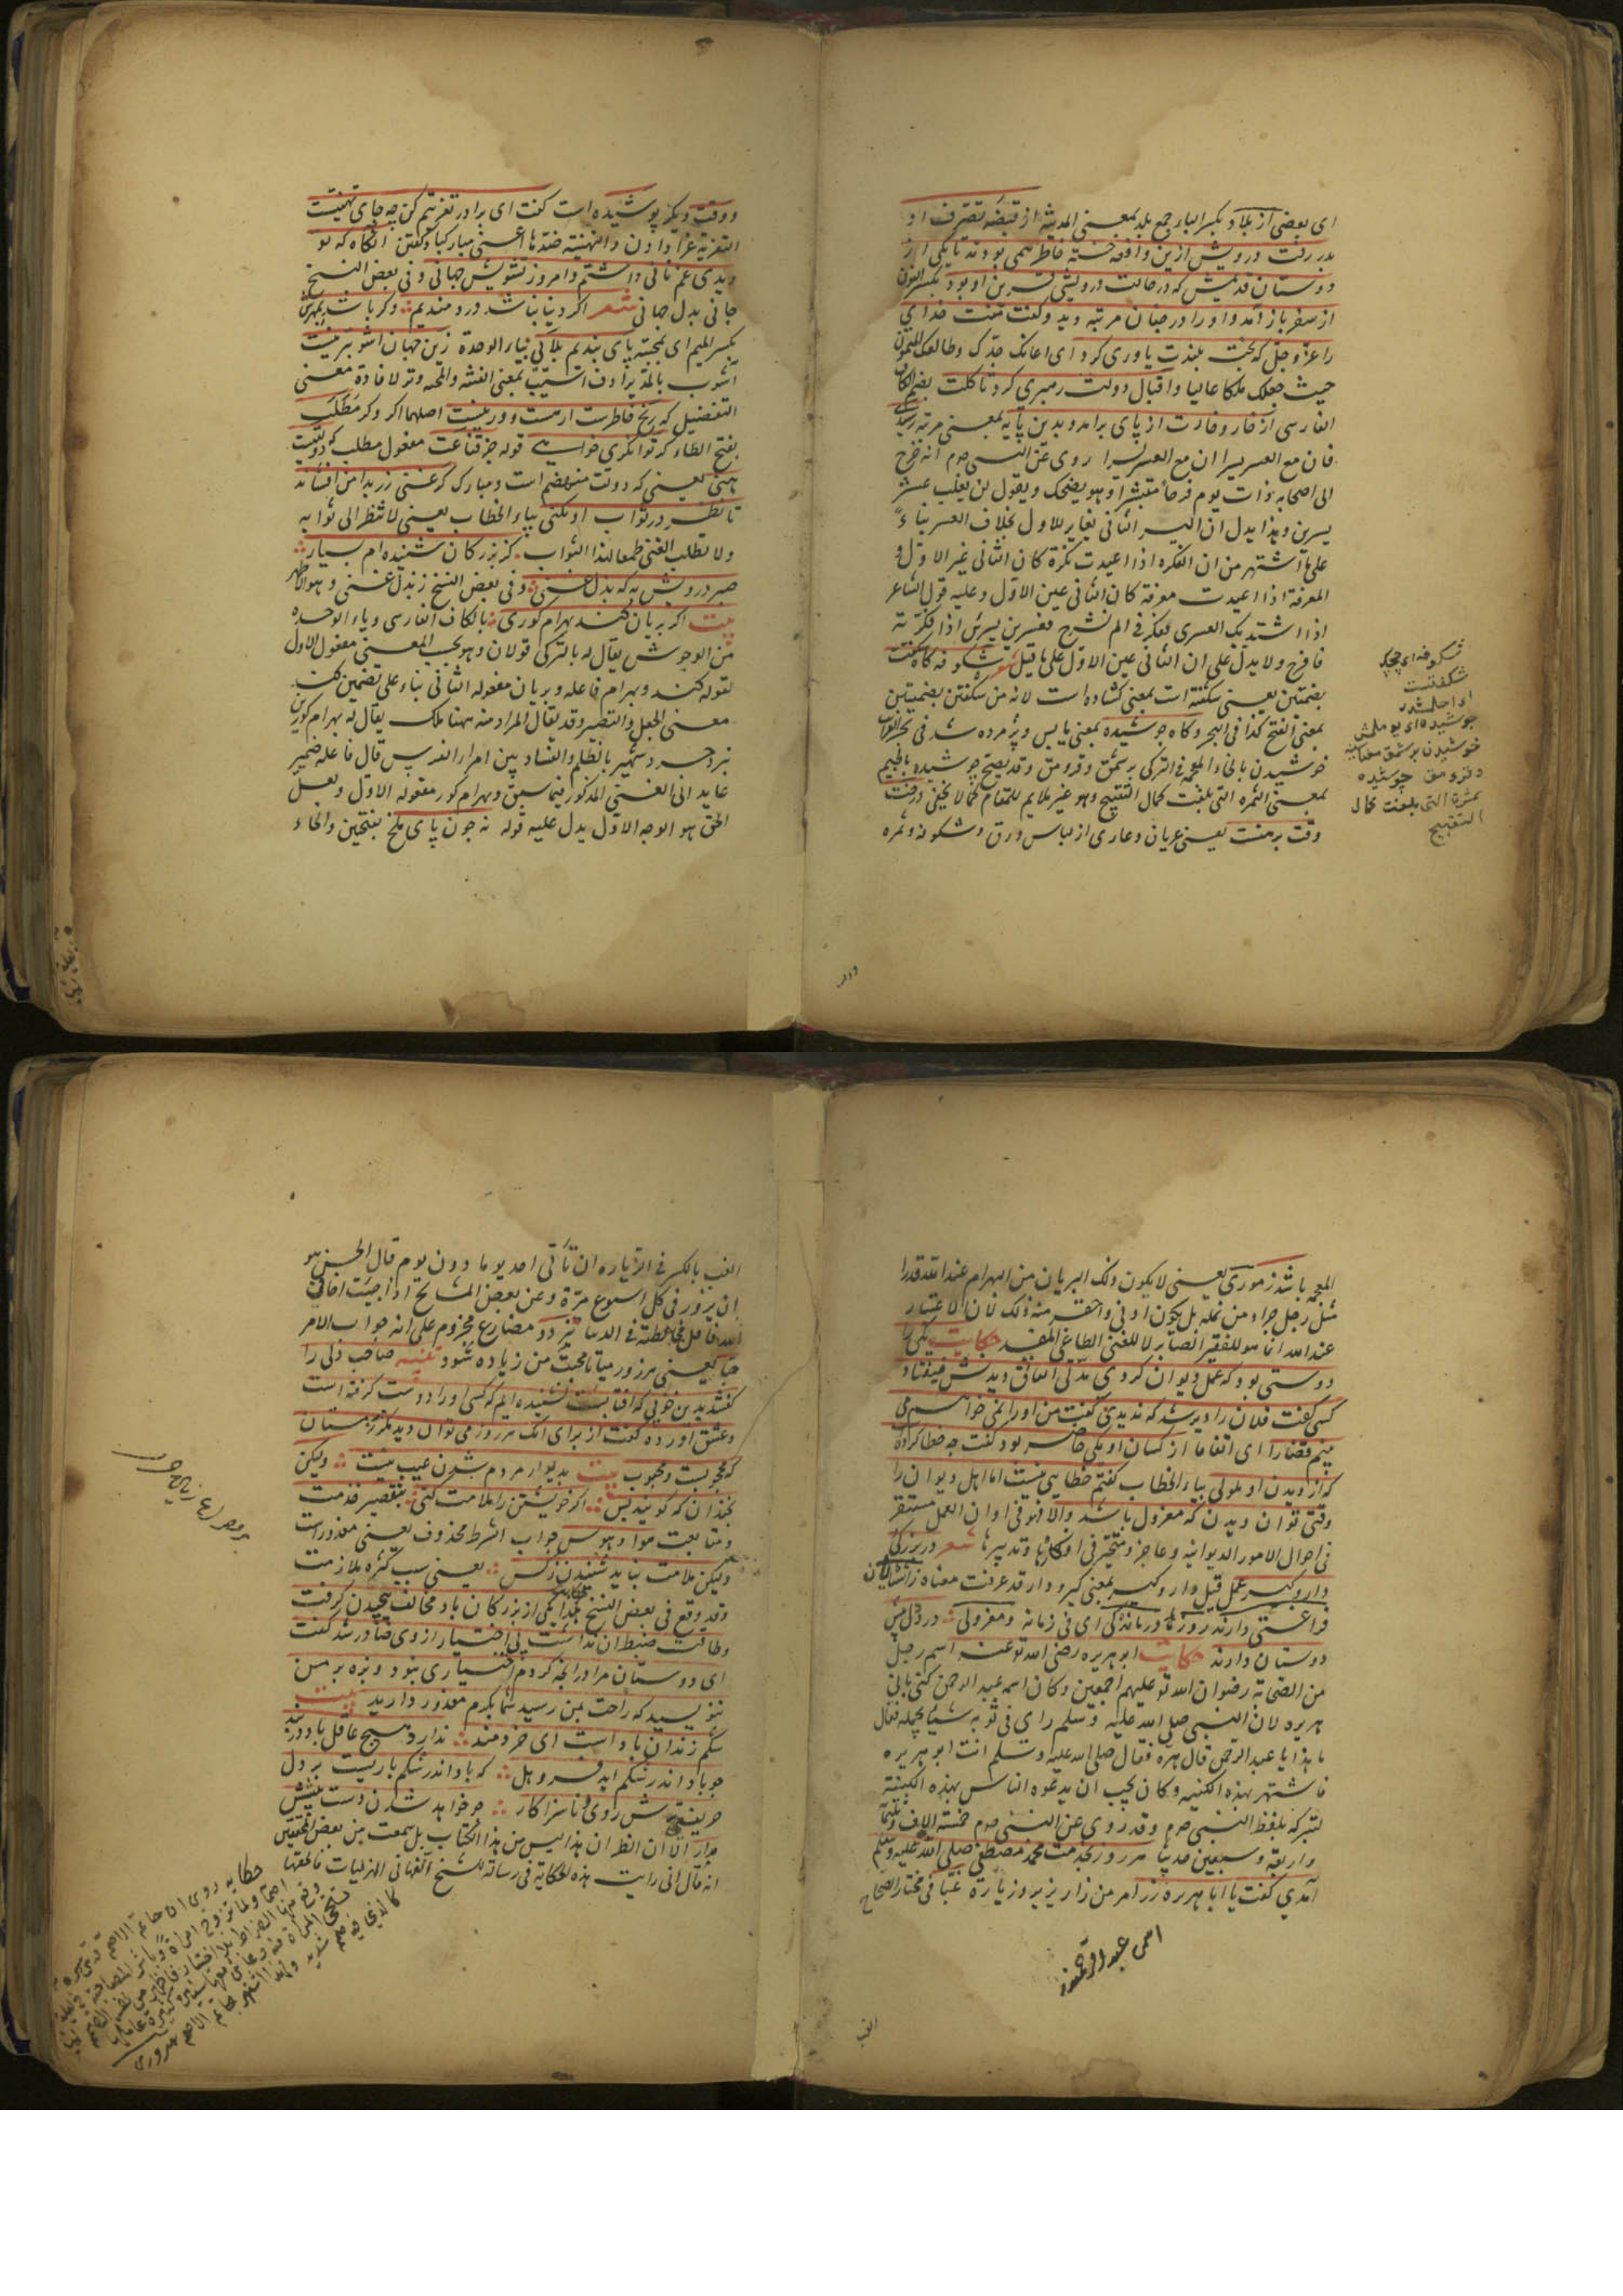 ای بعضی از بلاد بکسر الباء جمع بلد بمعنی المدینه از قبضه تصرف او
بدر رفت درویش ازین واقعه خسته خاطر همی بود تا یکی از
دوستان قدیمش که در حالت درویشی قرین او بود بکسر النون
از سفر باز آمد و او را در چنان مرتبه دید و گفت منت خدای
را عز و جل که بخت بلندت یاوری کرد ای اعانک جدک وطالعک المیمون
حیث جعلک ملکا عالیا واقبال ودولت رهبری کرد تا کلت بضم الکاف
الفارسی از خار و خارت از پای برآمد و بدین پایه بمعنی مرتبه رسیدی
فان مع العسر یسرا ان مع العسر یسرا روی عن النبی صم انه خرج
الی اصحابه ذات یوم فرحا مبتشرا وهو یضحک ویقول لن یغلب عسر
یسرین وهذا یدل ان الیسر الثانی یغایر للاول بخلاف العسر بناء
علی ما اشتهر من ان النکره اذا اعیدت نکرة کان الثانی غیر الاول و
المعرفة اذا اعیدت معرفة کان الثانی عین الاول وعلیه قول الشاعر
اذا اشتد بک العسری ففکر فی الم نشرح فعسر بین یسرین اذا فکرته
فافرح ولا یدل علی ان الثانی عین الاول علی ما قیل شعر شکوفه گاه شکفت
بضمتین یعنی شکفته است بمعنی گشاده است لانه من شکفتن بضمتین
بمعنی الفتح کذا فی البحر وگاه خوشیده بمعنی یابس وپژمرده شد فی بحر الغرائب
خوشیدن بالخاء المعجمة فی الترکی برشمق و قرومق وقد یصح جوشیده بالجیم
بمعنی الثمره التی بلغت کمال النضج وهو غیر ملایم للمقام کما لا یخفی درخت
وقت برهنست یعنی عریان وعاری از لباس ورق وشکوفه وثمره
شکوفه ای چیچک
شکفتست
ای اچلمشدر
خوشیدن برشمق معناسینه
و قرومق جوشیده
بمثرة التی بلغت کمال
ووقت دیگر پوشیده است گفت ای برادر تعزیتم کن چه جای تهنیت
التعزیة عزا دادن والتهنئة ضدها اعنی مبارکباد گفتن آنگاه که تو
دیدی غم نانی داشتم وامروز تشویش جهانی وفی بعض النسخ
جانی بدل جهانی شعر اگر دنیا نباشد دردمندیم وگر باشد بمهرش
بکسر المیم ای بمحبته پای بندیم بلائی بیاء الوحدة زین جهان آشوبتر نیست
آشوب بالمد یرادف آسیب بمعنی الفتنه والمحنه وتر لافادة معنی
التفضیل که رنج خاطرست ار هست ور نیست اصلهما اگر وگر مطلب
بفتح الطاء گر توانگری خواهی قوله جز قناعت مفعول مطلب که دولتیست
هنی یعنی که دولت منهضم است ومبارک گر غنی زر بدامن افشاند
تا نظر در ثواب او نکنی بیاء الخطاب یعنی لا تنظر الی ثوابه
ولا تطلب الغنی طمعا لهذا الثواب کز بزرگان شنیده ام بسیار
صبر درویش به که بذل غنی وفی بعض النسخ زبذل غنی وهو الاظهر
بیت اگر بریان کند بهرام گوری بالکاف الفارسی ویاء الوحده
من الوحوش یقال له بالترکی قولان وهو بحسب المعنی مفعول الاول
لقوله کند وبهرام فاعله وبریان مفعوله الثانی بناء علی تضمین کند
معنی الجعل والتصییر وقد یقال المراد منه ههنا ملک یقال له بهرام گور بن
یزدجرد شهیر بالظلم والفساد بین امراء الفرس قال فاعله ضمیر
عاید الی الغنی المذکور فیما سبق وبهرام گور مفعوله الاول ولعل
الحق هو الوجه الاول یدل علیه قوله نه چون پای ملخ بفتحتین والخاء
المعجمه باشد زموری یعنی لا یکون ذلک البریان من البهرام عند الله قدرا
مثل رجل جراد من نملة بل یکون ادنی واحقر منه وذلک لان الاعتبار
عند الله انما هو للفقیر الصابر لا للغنی الطاغی المفسد حکایت یکی را
دوستی بود که عمل دیوان کردی مدتی اتفاق دیدنش نیفتاد
کسی گفت فلان را دیر شد که ندیدی گفت من او را نمی خواهم که
بینم قضا را ای اتفاقا از کسان او یکی حاضر بود گفت چه خطا کرده
که از دیدن او ملولی بیاء الخطاب گفتم خطایی نیست اما اهل دیوان را
وقتی توان دیدن که معزول باشد والا فهو فی اوان العمل مستغر
فی احوال الامور الدیوانیه وعاجز ومتحیر فی افکارها وتدبیرها شعر در بزرگی
ودار وگیر عمل قیل دار وگیر بمعنی گیر ودار قد عرفت معناه زآشنایان
فراغتی دارند روز درماندگی ای فی زمانه ومعزولی درد دل پیش
دوستان دارند حکایت ابو هریره رضی الله تو عنه اسم رجل
من الصحابة رضوان الله تو علیهم اجمعین وکان اسمه عبد الرحمن کنی بابی
هریره لان النبی صلی الله علیه وسلم رای فی ثوبه شیئا یحمله فقال
ما هذا یا عبد الرحمن قال هرة فقال صلی الله علیه وسلم انت ابو هریره
فاشتهر بهذه الکنیه وکان یحب ان یدعوه الناس بهذه الکنیة
لتبرکه بلفظ النبی صم وقد روی عن النبی صم خمسة الاف وثلثمائة
واربعة وسبعین حدیثا هر روز بخدمت محمد مصطفی صلی الله علیه وسلم
آمدی گفت یا ابا هریره زر امر من زار یزور زیارة غبا فی مختار الصحاح
الغب
الغب بالکسر فی الزیاره ان تأتی احد یوما دون یوم قال الحسن هو
ان یزور فی کل اسبوع مرة وعن بعض المشایخ اذا جئت اخا فی
الله فاقلل مخالطته فی الدنیا تزدد مضارع مجزوم علی انه جواب الامر
حبا یعنی هر روز میا تا محبت من زیاده شود تنبیه صاحب دلی را
گفتند بدین خوبی که آفتابست نشنیده ایم که کسی او را دوست گرفته است
وعشق آورده گفت از برای آنکه هر روز می توان دید مگر زمستان
که محجوبست ومحبوب بیت بدیدار مردم شدن عیب نیست ولیکن
نچندان که گویند بس اگر خویشتن را ملامت کنی بتقصیر خدمت
ومتابعت هوا وهوس جواب الشرط محذوف یعنی معذور است
ولیکن ملامت نباید شنیدن زکس یعنی بسبب کثره ملازمت
وقد وقع فی بعض النسخ هکذا حکایت یکی از بزرگان باد مخالف پیچیدن گرفت
وطاقت ضبط آن نداشت بی اختیار از وی صادر شد گفت
ای دوستان مرا درانچه کردم اختیاری نبود وبزه بر من
ننویسید که راحت بمن رسید شما بکرم معذور دارید بیت
شکم زندان باد است ای خردمند ندارد هیچ عاقل باد در بند
چو باد اندر شکم آید فرو هل که باد اندر شکم باریست بر دل
حریف ترش روی ناسازگار چو خواهد شدن دست پیشش
مدار الا ان الظن ان هذا لیس من هذا الکتاب بل سمعت من بعض المحققین
انه قال انی رایت هذه الحکایة فی رسالة للشیخ الفها فی الهزلیات فالحقها
حکایه روی ان حاتم الاصم